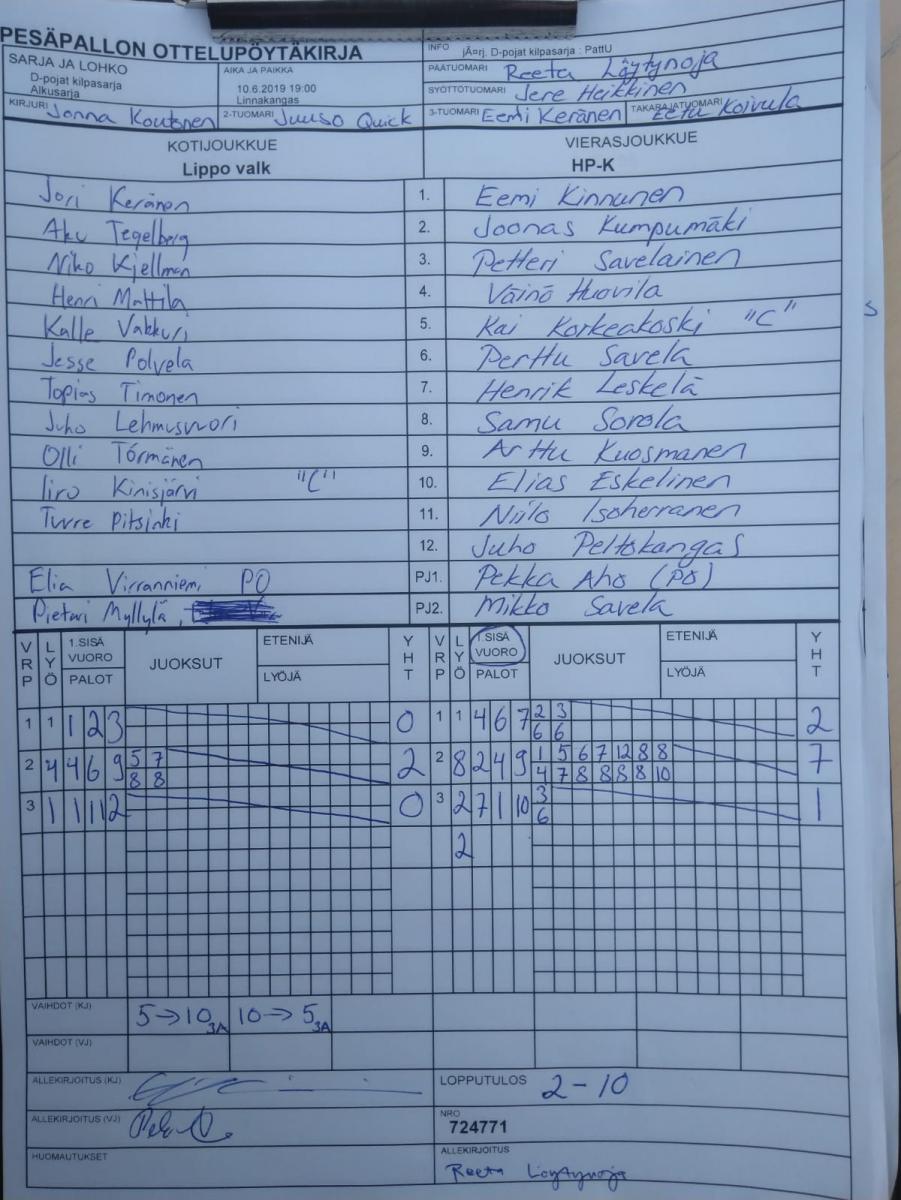 PESÄPALLON OTTELUPÖYTÄKIRJA
INFO jÃ¤rj. D-pojat kilpasarja : PattU
SARJA JA LOHKO
D-pojat kilpasarja
Alkusarja
AIKA JA PAIKKA
10.6.2019 19:00
Linnakangas
PÄÄTUOMARI Reeta Löytynoja
SYÖTTÖTUOMARI Jere Heikkinen
KIRJURI Jonna Koutonen
2-TUOMARI Juuso Quick
3-TUOMARI Eemi Keränen
TAKARAJATUOMARI Eetu Koivula
KOTIJOUKKUE
Lippo valk
VIERASJOUKKUE
HP-K
Jori Keränen 1. Eemi Kinnunen
Aku Tegelberg 2. Joonas Kumpumäki
Niko Kjellman 3. Petteri Savelainen
Henri Mattila 4. Väinö Huovila
Kalle Vakkuri 5. Kai Korkeakoski "C"
Jesse Polvela 6. Perttu Savela
Topias Timonen 7. Henrik Leskelä
Juho Lehmusvuori 8. Samu Sorola
Olli Törmänen 9. Arttu Kuosmanen
Iiro Kinisjärvi "C" 10. Elias Eskelinen
Tuure Pitsinki 11. Niilo Isoherranen
12. Juho Peltokangas
Elia Virranniemi PO PJ1. Pekka Aho (PO)
Pietari Myllylä, PJ2. Mikko Savela
VRP LYÖ 1.SISÄ VUORO PALOT JUOKSUT ETENIJÄ LYÖJÄ YHT VRP LYÖ 1.SISÄ VUORO PALOT JUOKSUT ETENIJÄ LYÖJÄ YHT
1 1 1 2 3 0 1 1 4 6 7 2 3 2
6 6
2 4 4 6 9 5 7 2 2 8 2 4 9 1 5 6 7 12 8 8 7
8 8 4 7 8 8 8 8 10
3 1 1 11 2 0 3 2 7 1 10 3 1
6
2
VAIHDOT (KJ) 5→10 3A 10→5 3A
VAIHDOT (VJ)
ALLEKIRJOITUS (KJ)
LOPPUTULOS 2-10
ALLEKIRJOITUS (VJ)
NRO
724771
HUOMAUTUKSET
ALLEKIRJOITUS
Reeta Löytynoja